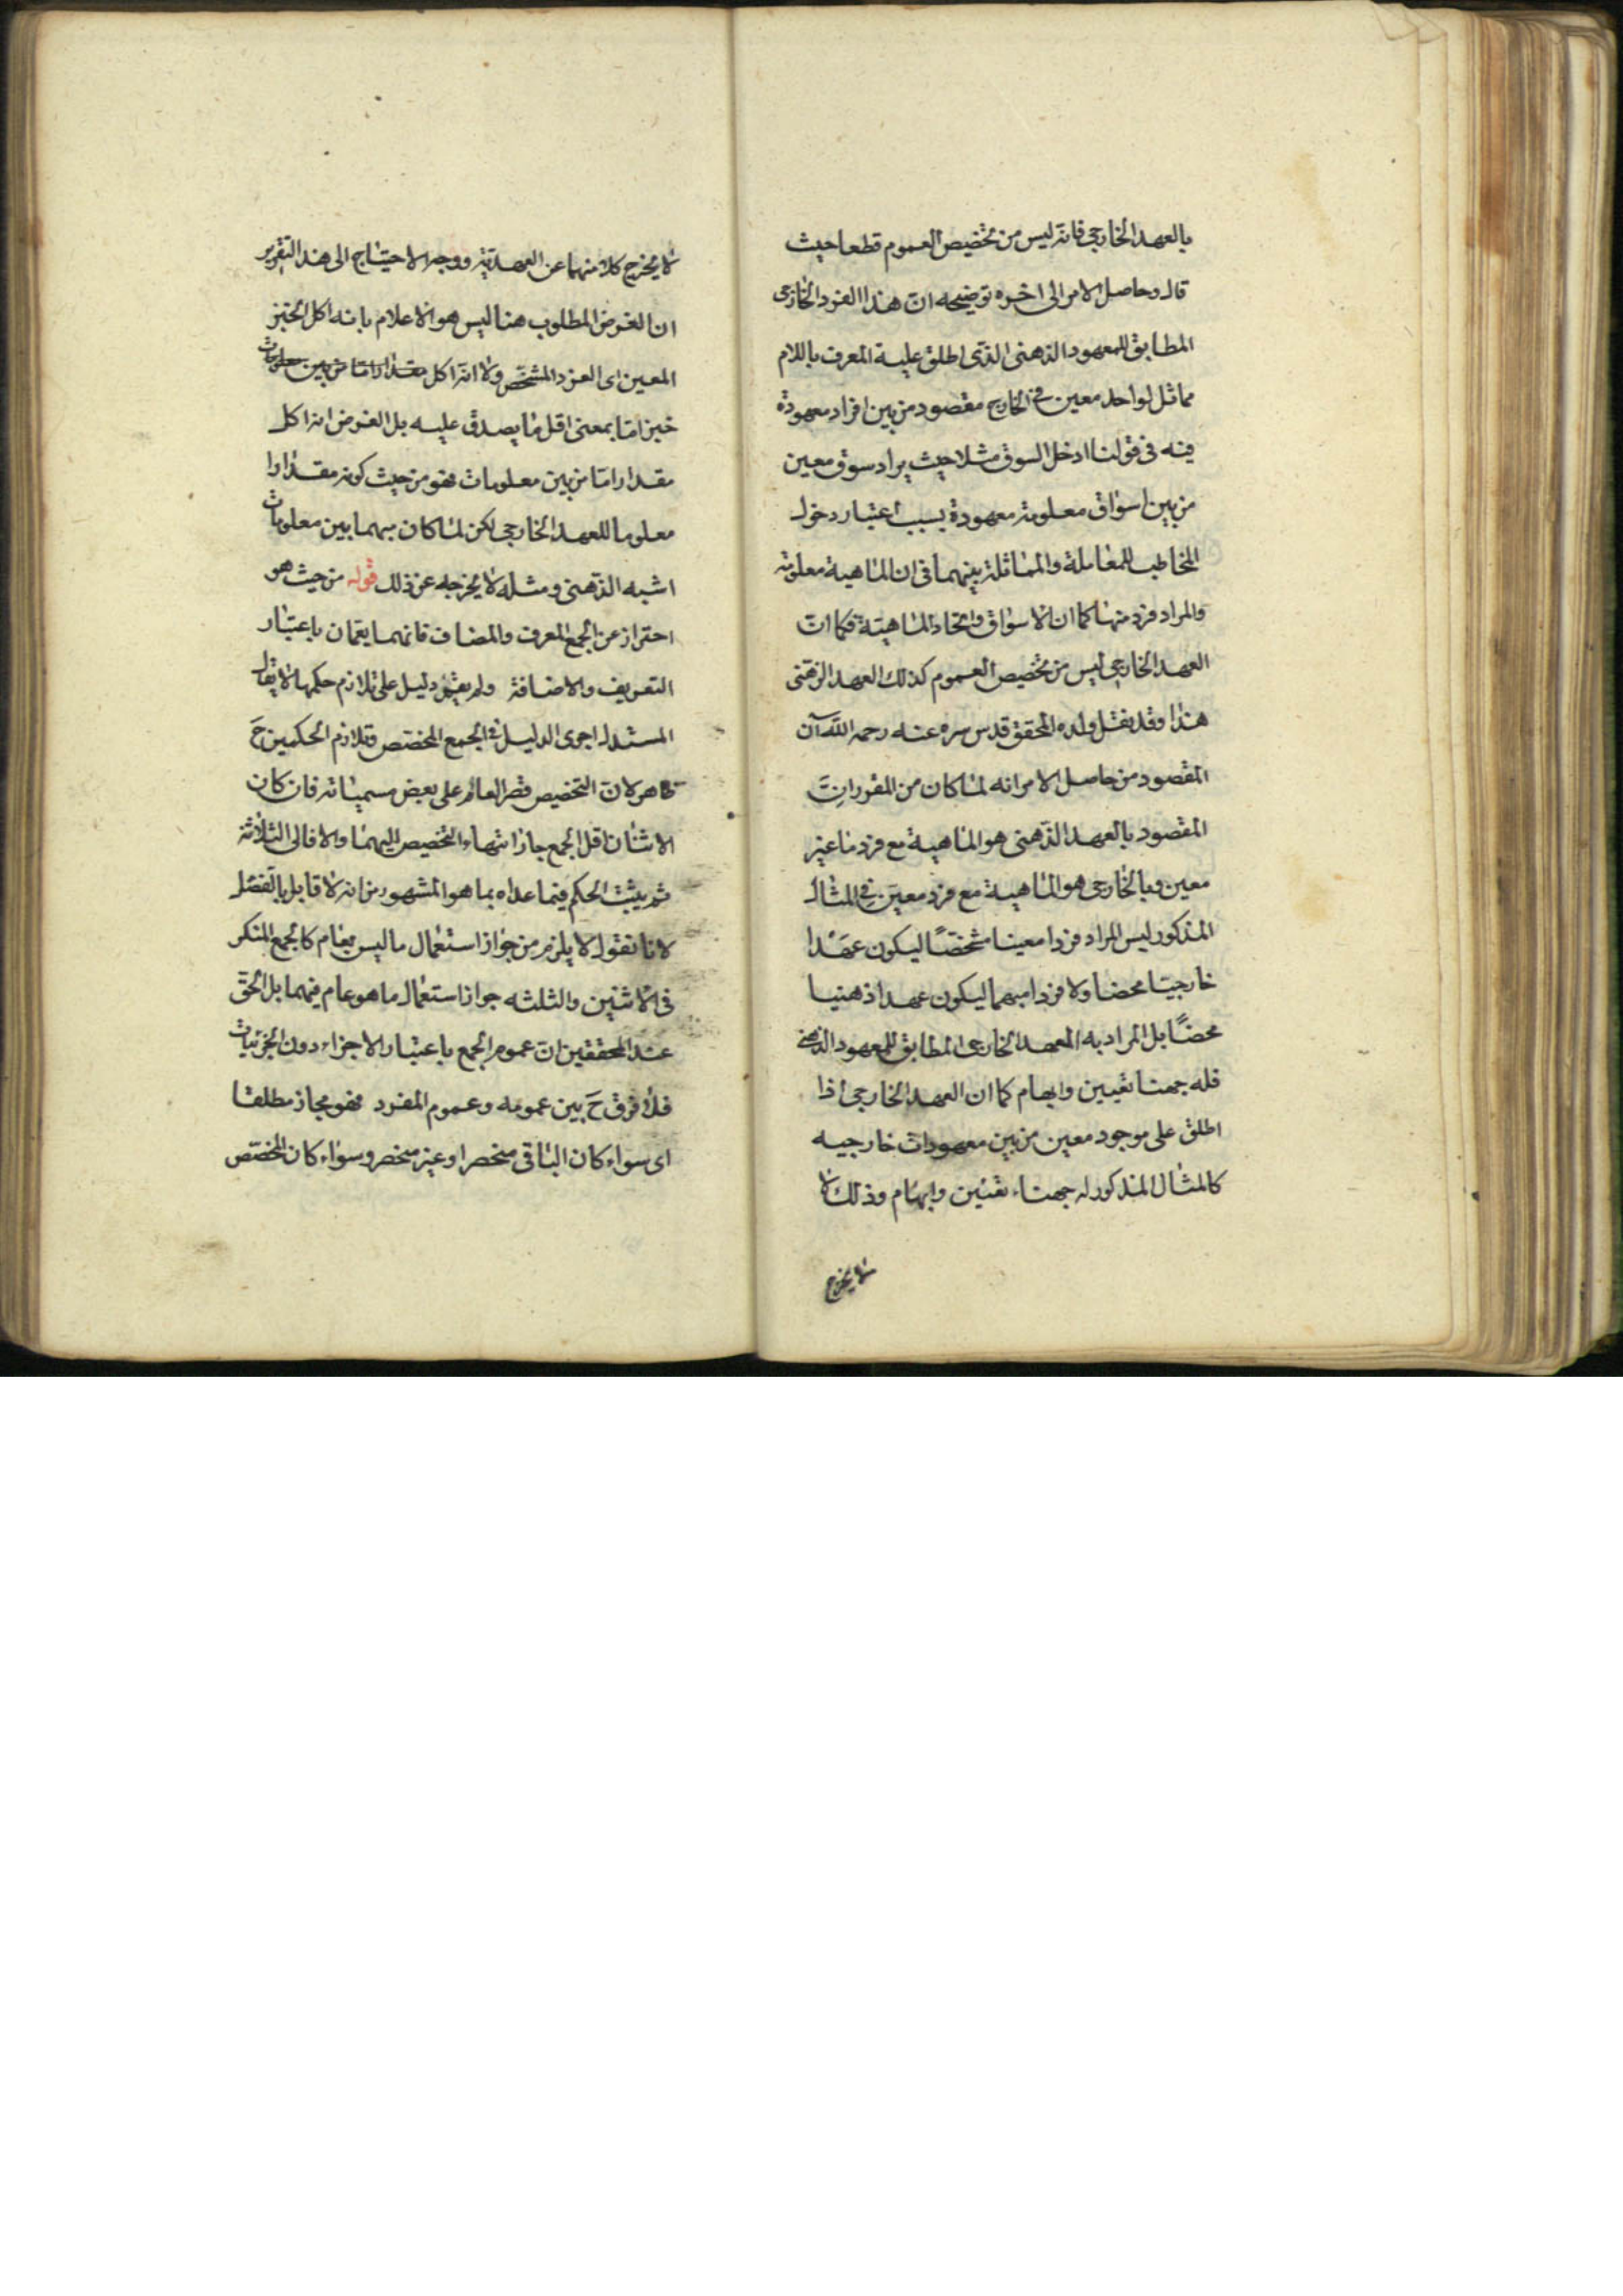 بالعهد الخارجى فانه ليس من تخصيص العموم قطعا حيث
قال وحاصل الامر الى اخره توضيحه ان هذا الفرد الخارجى
المطابق للمعهود الذهنى الذى اطلق عليه المعرف باللام
مماثل لواحد معين فى الخارج مقصود من بين افراد معهودة
فيه فى قولنا ادخل السوق مثلا حيث يراد سوق معين
من بين اسواق معلومة معهودة بسبب اعتبار دخول
المخاطب للمعاملة والمماثلة بينهما فى ان الماهية معلومة
والمراد فرد منها كما ان الاسواق واتحاد الماهية فكما ان
العهد الخارجى ليس من تخصيص العموم كذلك العهد الذهنى
هذا وقد نقل ولده المحقق قدس سره عنه رحمه الله ان
المقصود من حاصل الامر انه لما كان من المقررات
المقصود بالعهد الذهنى هو الماهية مع فرد ما غير
معين وبالخارجى هو الماهية مع فرد معين فى المثال
المذكور ليس المراد فردا معينا مشخصًا ليكون عهدا
خارجيا محضا ولا فردا مبهما ليكون عهدا ذهنيا
محضًا بل المراد به المعهد الخارجى المطابق للمعهود الذهنى
فله جهتا تعيين وابهام كما ان العهد الخارجى اذا
اطلق على موجود معين من بين معهودات خارجيه
كالمثال المذكور له جهتاء تعيين وابهام وذلك لا
لا يخرج
لا يخرج كلا منهما عن العهدية ووجه الاحتياج الى هذا التقرير
ان الغرض المطلوب هنا ليس هو الاعلام بانه اكل الخبز
المعين اى الفرد المشخص ولا انه اكل مقدارا ما من بين معلومات
خبز اما بمعنى اقل ما يصدق عليه بل الغرض انه اكل
مقدارا ما من بين معلومات فهو من حيث كونه مقدارا
معلوما للعهد الخارجى لكن لما كان مبهما بين معلومات
اشبه الذهنى ومثله لا يخرجه عن ذلك قوله من حيث هو
احتراز عن الجمع المعرف والمضاف فانهما يعمان باعتبار
التعريف والاضافة ولم يقم دليل على تلازم حكمها لا يقال
المستدل اجرى الدليل فى الجمع المخصص وتلازم الحكمين ح
ظاهر لان التخصيص قصر العام على بعض مسمياته فان كان
الاثنان اقل الجمع جاز انتهاء التخصيص اليهما والا فالى الثلاثة
ثم يثبت الحكم فيما عداه بما هو المشهور من انه لا قابل بالفصل
لانا نقول لا يلزم من جواز استعمال ما ليس بعام كالجمع المنكر
فى الاثنين والثلثه جواز استعمال ما هو عام فيهما بل الحق
عند المحققين ان عموم الجمع باعتبار الاجزاء دون الجزئيات
فلا فرق ح بين عمومه وعموم المفرد فهو مجاز مطلقا
اى سواء كان الباقى منحصرا او غير منحصر وسواء كان المخصص